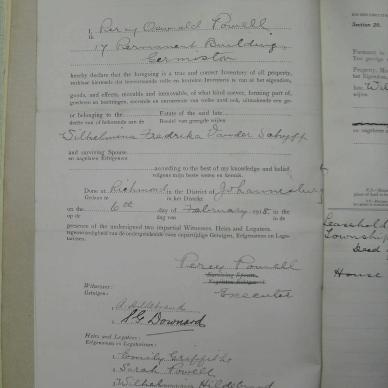 I, Percy Oswald Powell
Ik
17 Permanent Buildings
Germiston
hereby declare that the foregoing is a true and correct Inventory of all property,
verklaar hiermede dat bovenstaande volle en korrekte Inventaris is van al het eigendom,
goods, and effects, movable and immovable, of what kind soever, forming part of,
goederen en bezittingen, roerende en onroerende van welke aard ook, uitmakende een ge-
or belonging to the Estate of the said late
deelte van of behorende aan de Boedel van gezegde wijlen
Wilhelmina Fredrika Vander Schyff
and surviving Spouse
en nagelaten Echtgenoot
according to the best of my knowledge and belief.
volgens mijn beste weten en kennis.
Done at Richmond in the District of Johannesburg
Gedaan te in het Distrikt
on the 6th day of February 1918, in the
op de dag van in de
presence of the undersigned two impartial Witnesses, Heirs and Legatees.
tegenwoordigheid van de ondergetekende twee onpartijdige Getuigen, Erfgenamen en Lega-
tarissen.
Percy Powell
Surviving Spouse.
Nagelaten Echtgenoot.
Executor
Witnesses:
Getuigen:
A Hildebrand
S G Downard
Heirs and Legatees:
Erfgenamen en Legatarissen:
Emily Griffiths
Sarah Powell
Wilhelmina Hildebrand
Section 29.
Leasehold
Township
Deed
House